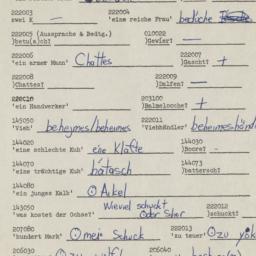 222003 222004
zwei K — 'eine reiche Frau' baduche
222005 (Aussprache & Bedtg.) 010022
)betu(a)ch? — )Gewier? —
222006 222007
'ein armer Mann' Chattes )Gascht? +
222008 222009
)Chattes? )Dalfen? —
222010 203100
'ein Handwerker' )Balmelooche? +
145050 222011
'Vieh' beheymes/beheimes 'Viehhändler' beheimeshänd
144020 144030
'eine schlechte Kuh' eine Klafte )Boore? -
144070 144073
'eine trächtige Kuh' bätasch )battersch?
144080
'ein junges Kalb' ʘ Ackel
143050 222012
'was kostet der Ochse?' Wieviel schuckt oder Stier )schuckt?
207080 222013
'hundert Mark' ʘ mei Schuck 'zu teuer' ʘ zu yok
206030 206040